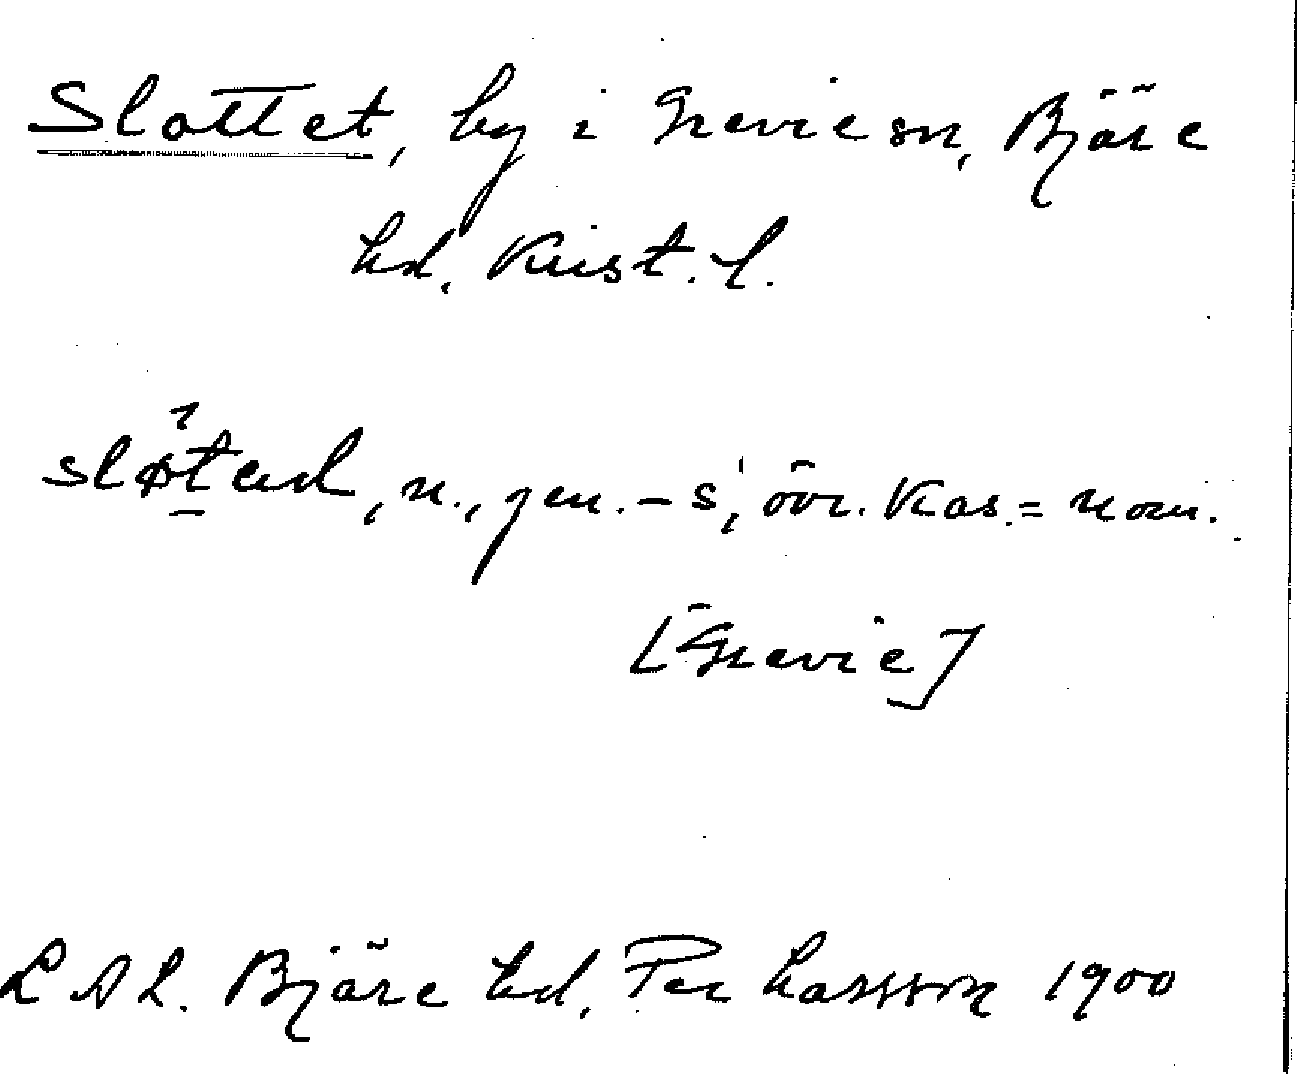 Slottet, by i Grevie sn, Bjäre
hd, Krist. l.
n., gen. -s, övr. kas. = nom.
[Grevie]
L A L. Bjäre hd, Per Larsson 1900